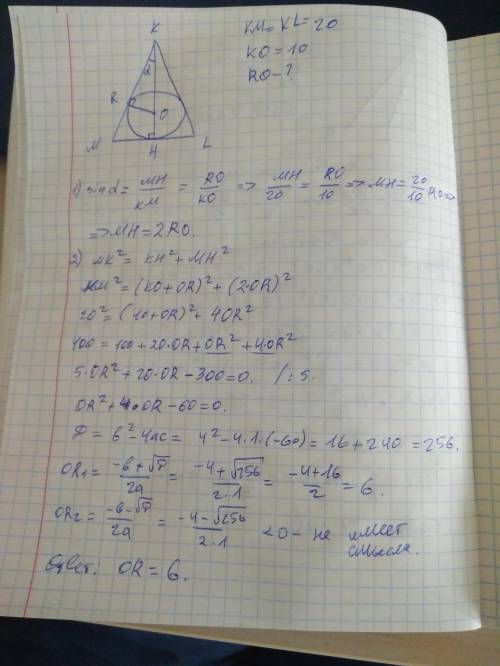 K
α
R
O
M
H
L
KM = KL = 20
KO = 10
RO - ?
1) sin α = MH/KM = RO/KO => MH/20 = RO/10 => MH = 20/10 RO =>
=> MH = 2RO.
2) MK² = KH² + MH²
KM² = (KO + OR)² + (2·OR)²
20² = (10 + OR)² + 4OR²
400 = 100 + 20·OR + OR² + 4·OR²
5·OR² + 20·OR - 300 = 0. /:5.
OR² + 4·OR - 60 = 0.
D = b² - 4ac = 4² - 4·1·(-60) = 16 + 240 = 256.
OR₁ = (-b + √D)/2a = (-4 + √256)/(2·1) = (-4 + 16)/2 = 6.
OR₂ = (-b - √D)/2a = (-4 - √256)/(2·1) < 0 - не имеет
смысла.
Ответ: OR = 6.